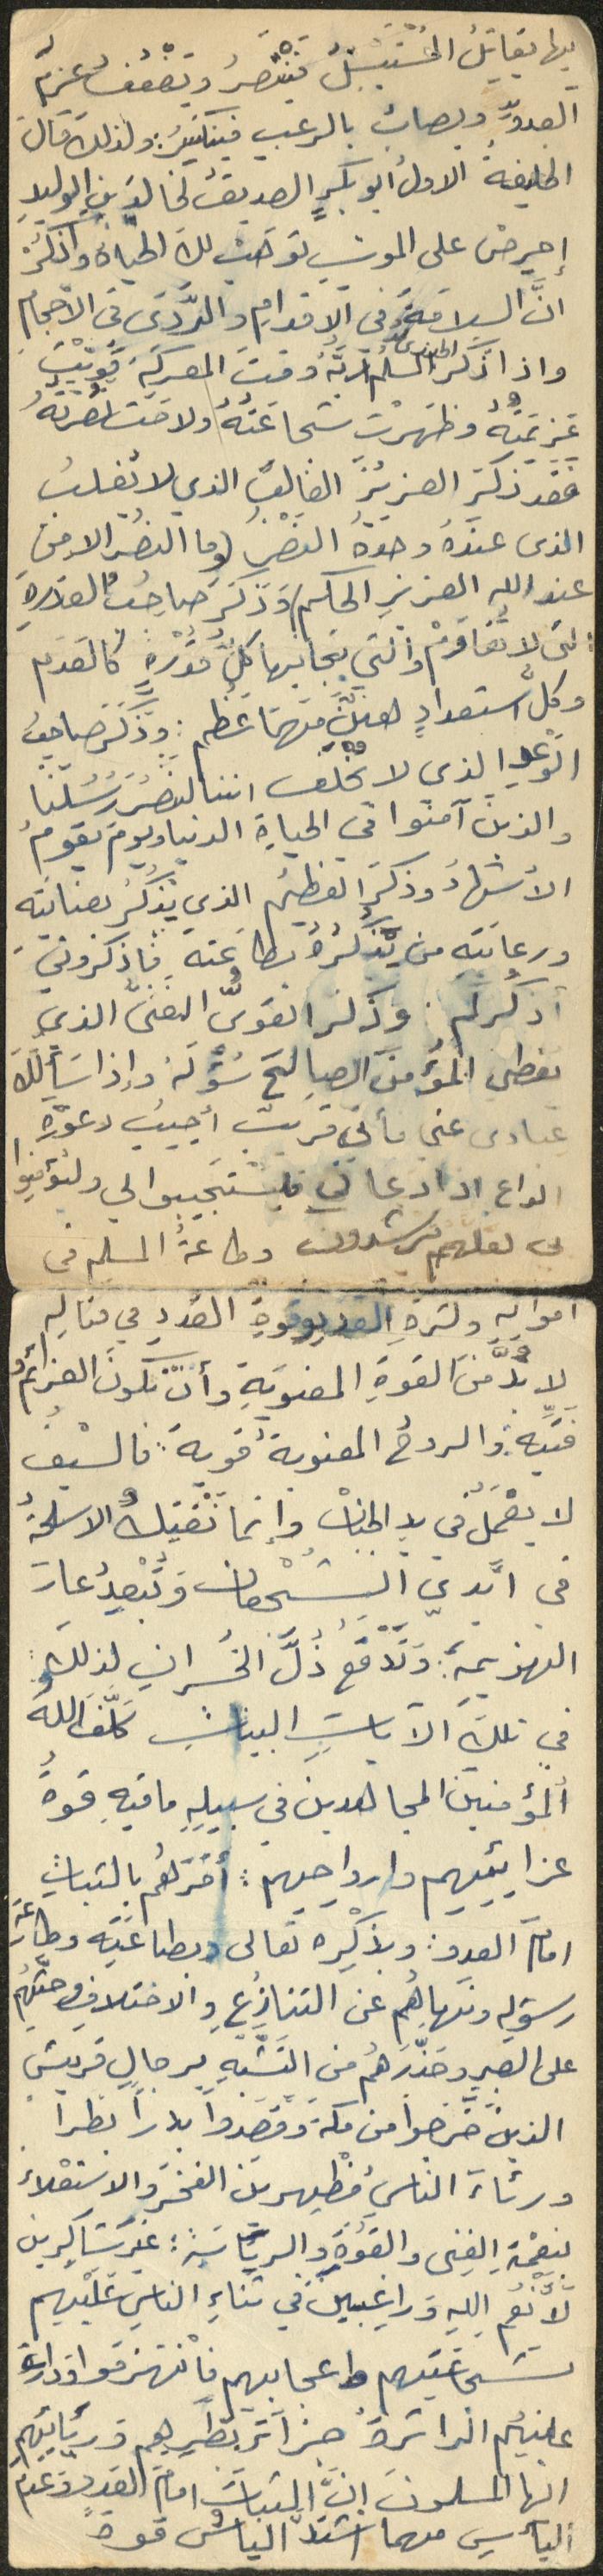 بها يقاتل المستبسل فينتصر وتضعف عزيمة
العدو ويصاب بالرعب فينكسر: ولذلك قال
الخليفة الاول أبو بكرٍ الصديق لخالد بن الوليد
إحرص على الموت توهب لك الحياة واذكر
انَّ السلامة في الإقدام والردى في الأحجام
واذا ذكر الجندى المسلم ربَّهُ وقت المعركة قويت
عزيمته وظهرت شجاعتهُ ولاحت نصرته
فقد ذكر العزيز الغالب الذي لا يغلب
الذى عنده وحدهُ النصْرُ (وما النصر الا من
عند الله العزيز الحكيم) وذكر صاحب القدرة
التى لا تقاوم والتي بجانبها كل قدرةٍ كالعدم
وكل استعداد هينٌ مهما عظم: وذكر صاحب
الوعد الذى لا يخلف اننا لننصر رسلنا
والذين آمنوا في الحياة الدنيا ويوم يقوم
الأشهاد وذكر العظيم الذي يذكر بعنايته
ورعايته من يذكرهُ بطاعته فاذكروني
أذكركم: وذكر القوىَّ الغنىَّ الذي
يعطى المؤمن الصالح سؤلهُ وإذا سألك
عبادى عني فأني قريب أجيب دعوة
الداع اذا دعاني فليستجيبوا لي وليؤمنوا
بي لعلهم يرشدون وطاعة المسلم في
أمواله وكثرة العدد وقوة العدد في قتاله
لا بدَّ من القوة المعنوية وأن تكون العزائم
فتيه: والروح المعنوية قوية: فالسيف
لا يعمل في يد الجبان وإنما تفتك الاسلحة
في أيدي الشجعان وتُبْعِدُ عار
الهزيمة: وتدفع ذل الخسران لذلك:
في تلك الآيات البينات كلَّف الله
المؤمنين المجاهدين في سبيله ما فيه قوة
عزائمهم وارواحهم: أمرهم بالثبات
امام العدو: وبذكره تعالى وبطاعته وطاعة
رسوله ونهاهُم عن التنازع والاختلاف وحثهم
على الصبر وحذَّرهُم من التشبه برجال قريش
الذين خرجوا من مكة وقصدوا بدراً بطراً
ورئاء الناس مظهرين الفخر والاستعلاء
بنعمة الغنى والقوة والرياسة: غير شاكرين
لأنعم الله وراغبين في ثناء الناس عليهم
بشجاعتهم واعجابهم فانهزموا ودارت
عليهم الدائرة جزاء بطرهم وريائهم
ايها المسلمون انَّ الثبات امام العدو وعدم
اليأس مهما اشتد البأس قوة